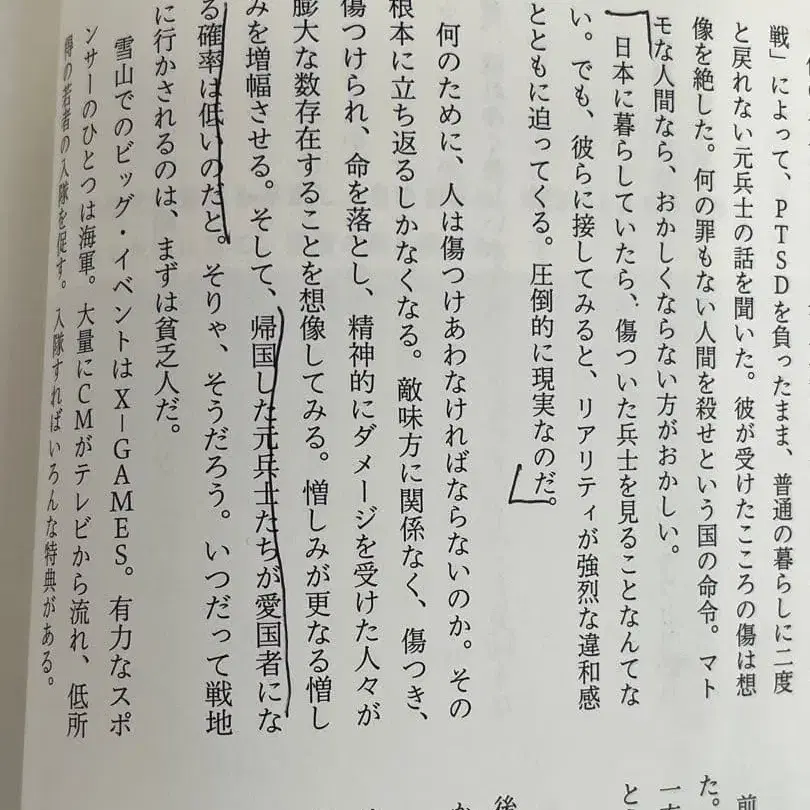 戦」によって、PTSDを負ったまま、普通の暮らしに二度
と戻れない元兵士の話を聞いた。彼が受けたこころの傷は想
像を絶した。何の罪もない人間を殺せという国の命令。マト
モな人間なら、おかしくならない方がおかしい。
日本に暮らしていたら、傷ついた兵士を見ることなんてな
い。でも、彼らに接してみると、リアリティが強烈な違和感
とともに迫ってくる。圧倒的に現実なのだ。
何のために、人は傷つけあわなければならないのか。その
根本に立ち返るしかなくなる。敵味方に関係なく、傷つき、
傷つけられ、命を落とし、精神的にダメージを受けた人々が
膨大な数存在することを想像してみる。憎しみが更なる憎し
みを増幅させる。そして、帰国した元兵士たちが愛国者にな
る確率は低いのだと。そりゃ、そうだろう。いつだって戦地
に行かされるのは、まずは貧乏人だ。
雪山でのビッグ・イベントはX-GAMES。有力なスポ
ンサーのひとつは海軍。大量にCMがテレビから流れ、低所
得の若者の入隊を促す。入隊すればいろんな特典がある。
前
た。
後